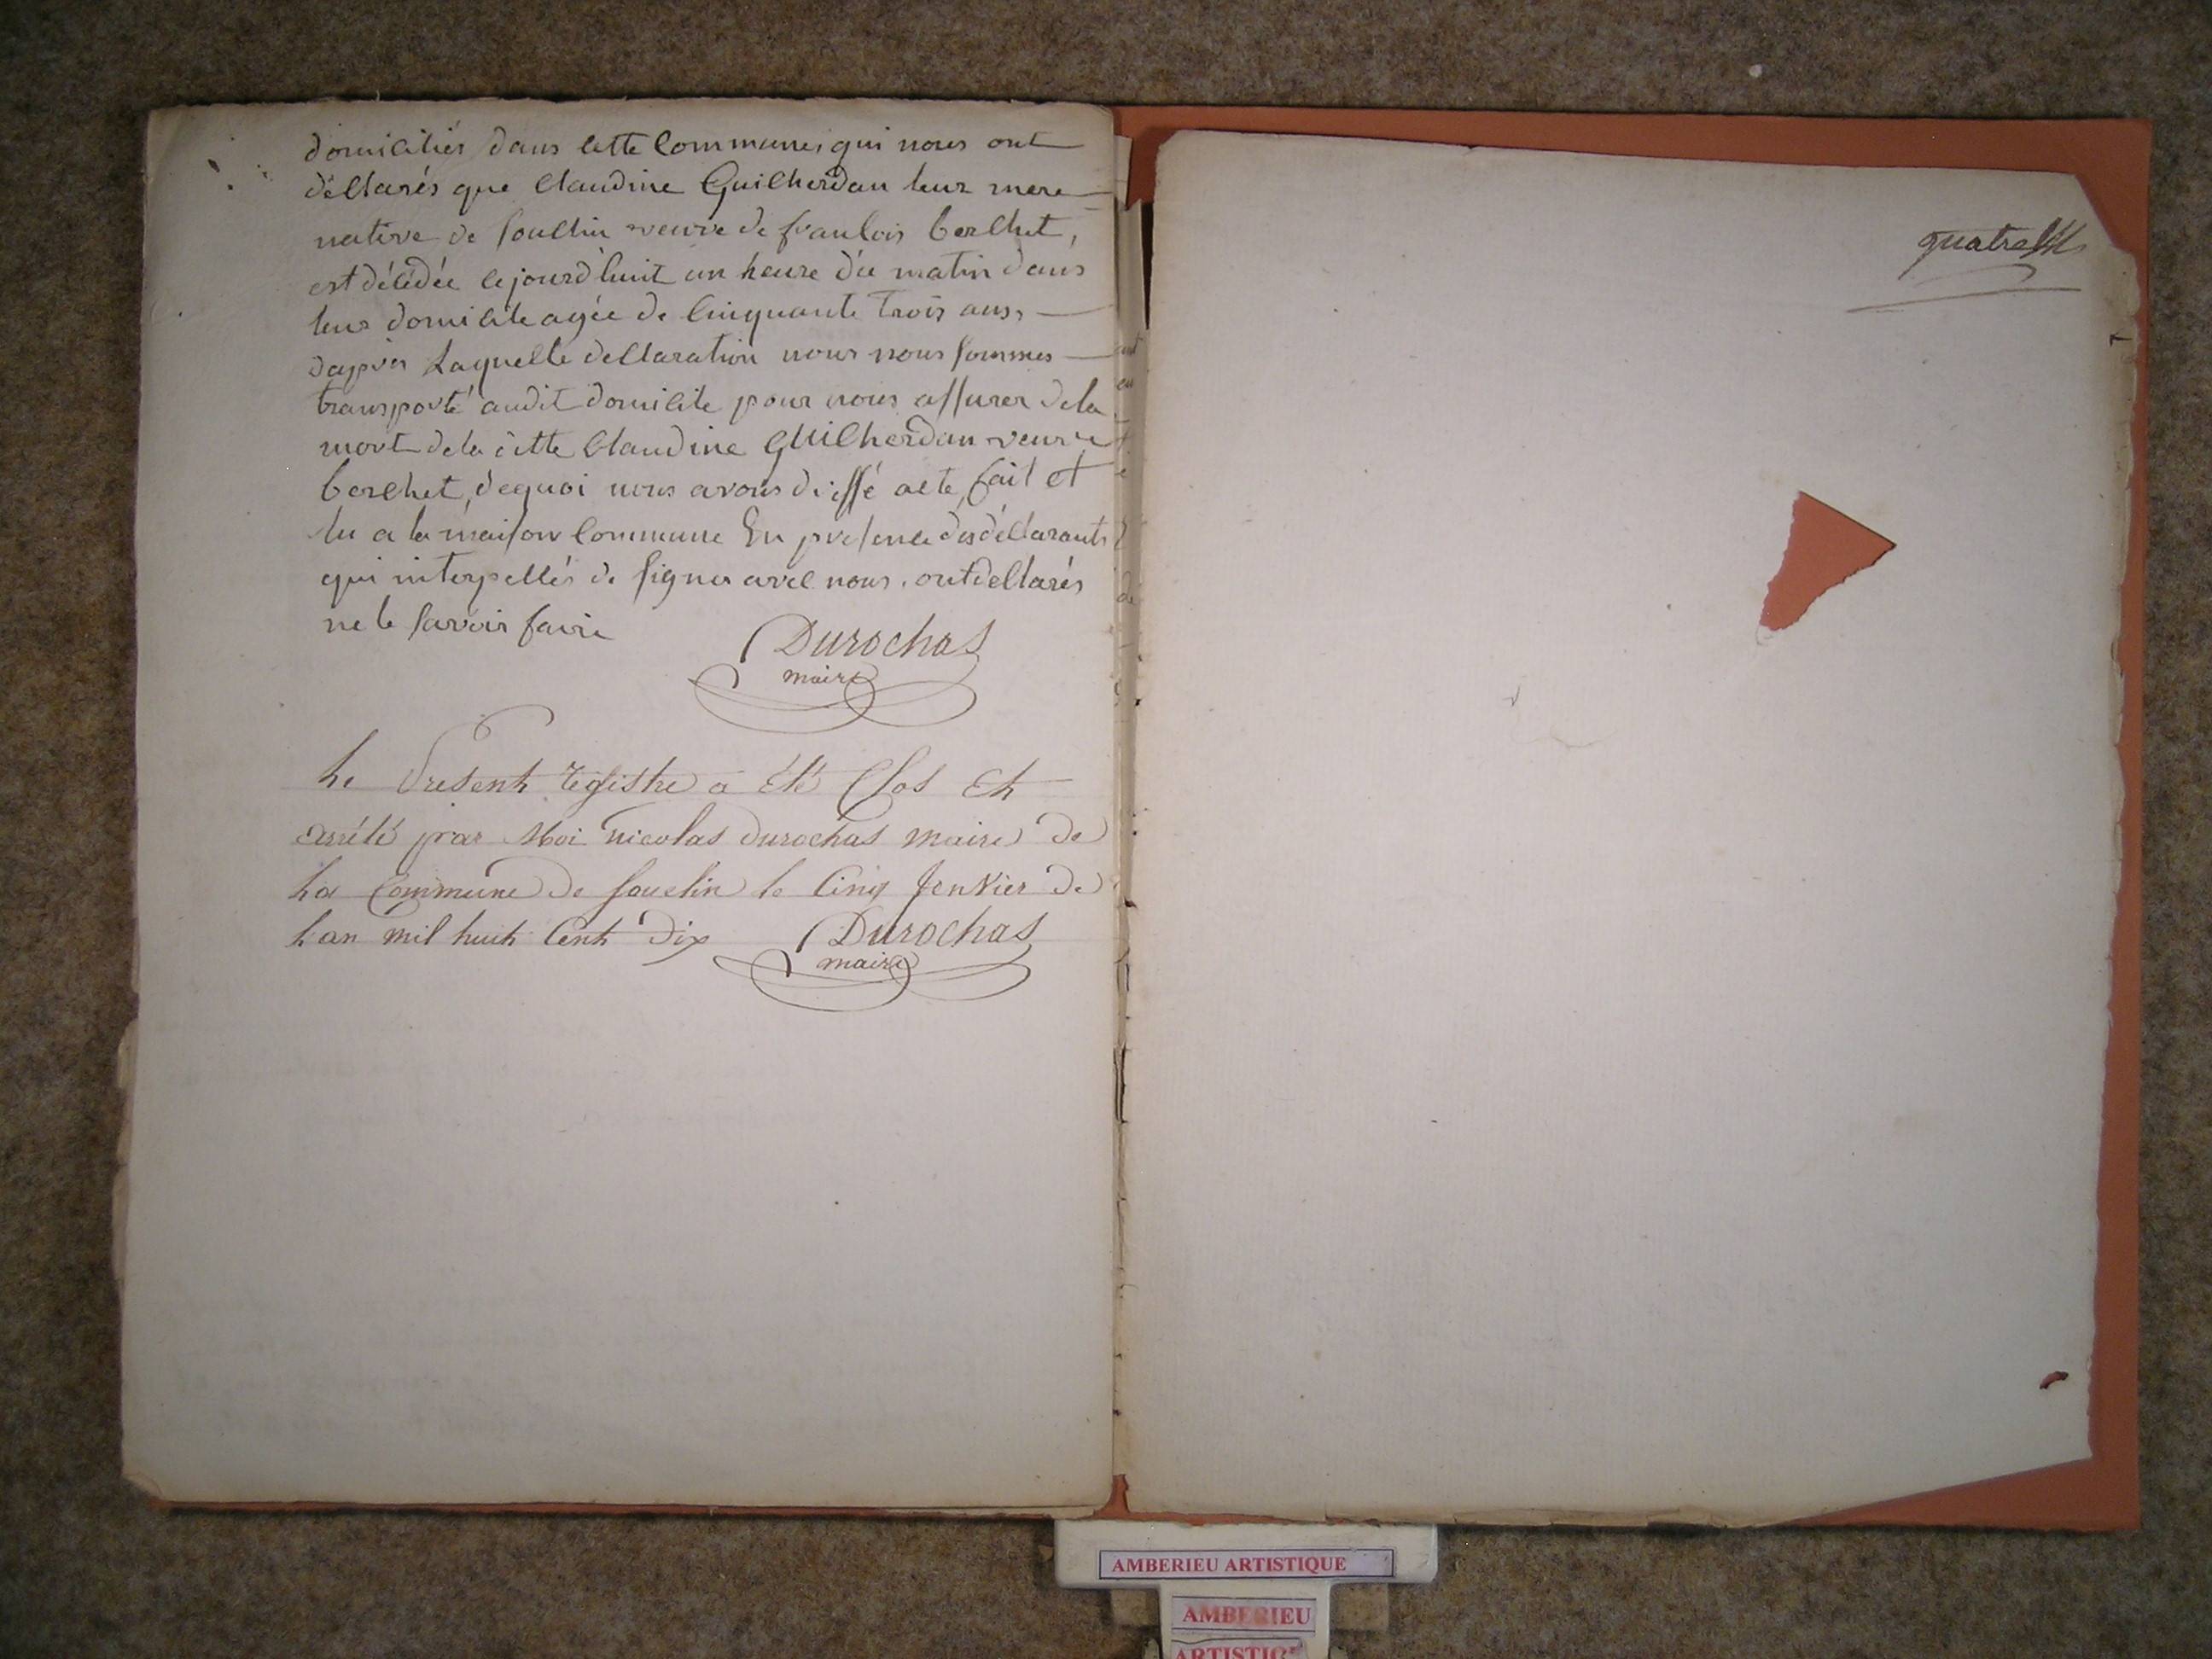 domiciliés dans cette Commune, qui nous ont
déclarés que Claudine Guilherdan leur mere
native de Souclin veuve de francois berchet,
est décédée cejourd'huit un heure du matin dans
leur domicile agée de Cinquante trois ans,
dapres Laquelle declaration nous nous sommes
transporté audit domicile pour nous assurer dela
mort dela ditte Claudine Guilherdan veuve
berchet, dequoi nous avons dressé acte, fait et
lu a la maison Commune En presence des déclarants
qui interpellés de signer avec nous, ont declarés
ne le savoir faire
Durochas
maire
Le Present registre a été Clos Et
arrété par Moi nicolas durochas maire de
La Commune de souclin le Cinq Jenvier de
Lan mil huit Cent Dix
Durochas
maire
AMBERIEU ARTISTIQUE
AMBERIEU